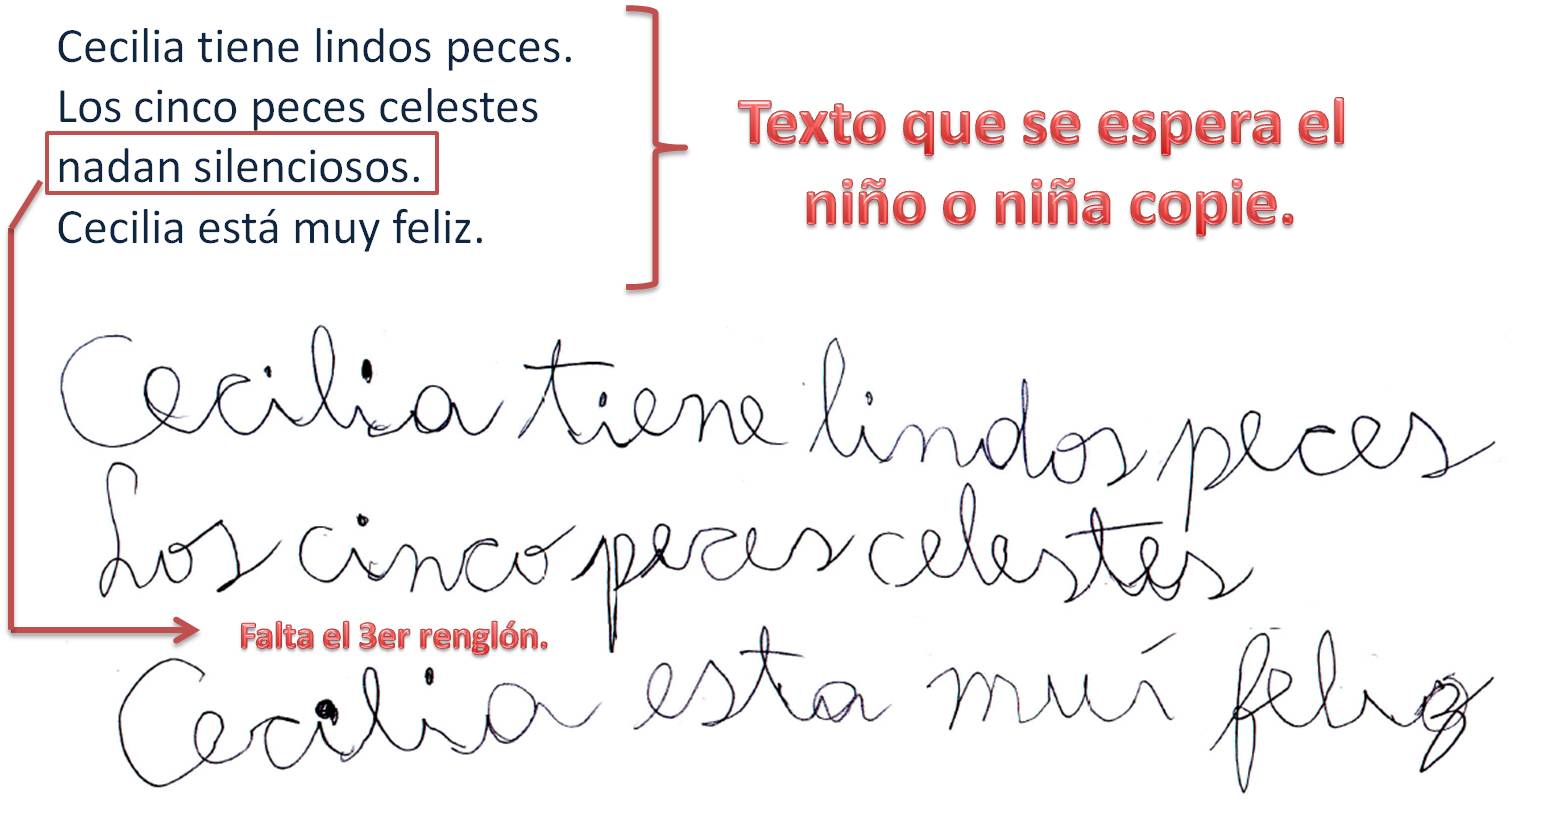 Cecilia tiene lindos peces.
Los cinco peces celestes
nadan silenciosos.
Cecilia está muy feliz.
Texto que se espera el
niño o niña copie.
Cecilia tiene lindos peces
Los cinco peces celestes
Falta el 3er renglón.
Cecilia esta muí feliz